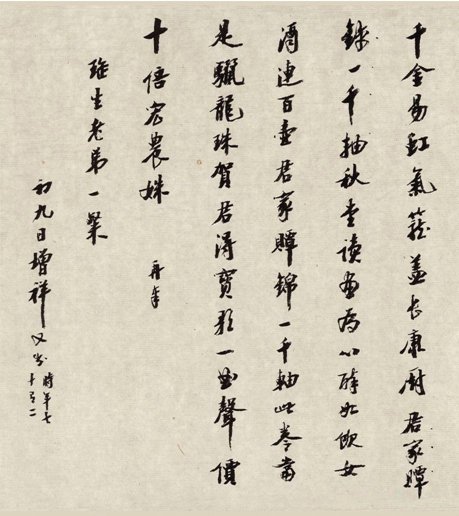 千金易缸氣蘢蓋長康廚君家贉
錦一千軸秋堂讀畫為公醉如傾女
酒連百壺君家贉錦一千軸此卷當
是驪龍珠賀君得寶歌一曲聲價
十倍宏農姝 再筆
瑤生老弟一粲
初九日增祥又書時年七
十有二